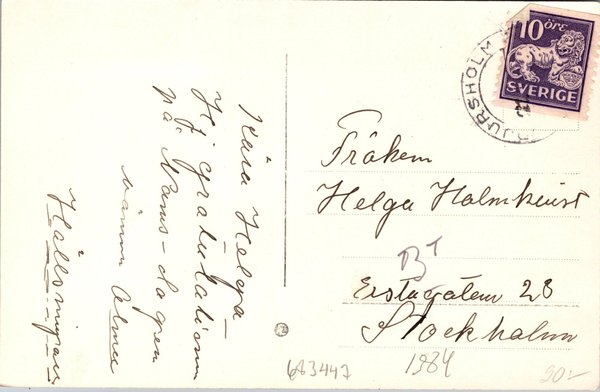 Kära Helga -
Hj. gratulation
på Namns-dagen
önskar
Hälsningar
10 ÖRE
SVERIGE
DJURSHOLM
Fröken
Helga Holmkvist
BT
Erstagatan 28
Stockholm
683447
1984
90:-